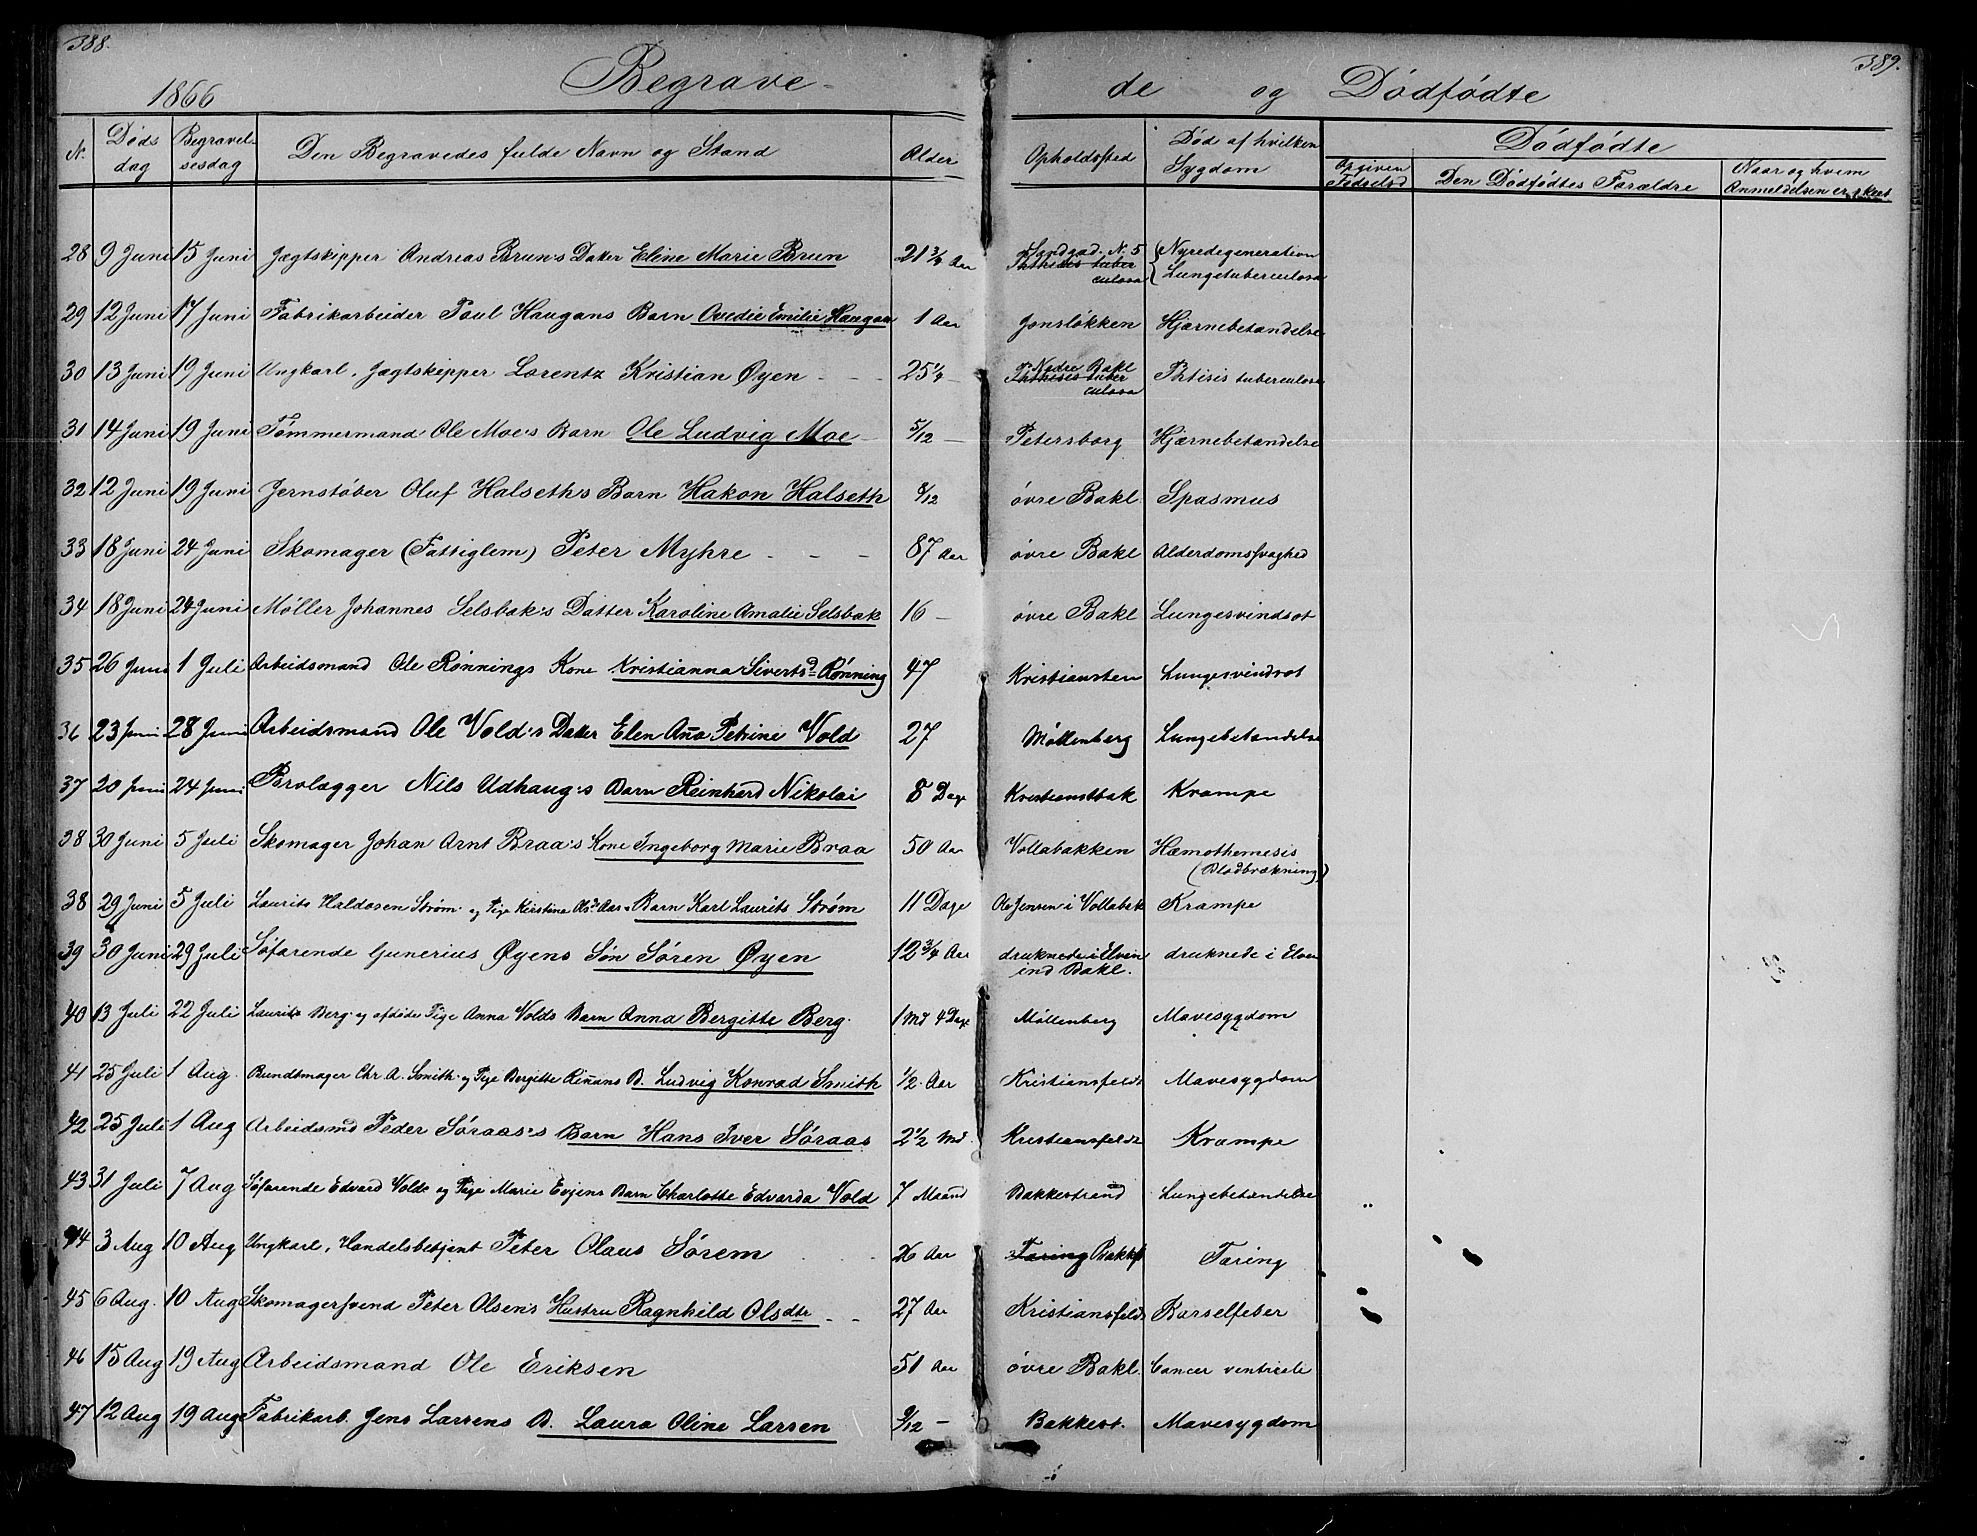 388.
389.
Begrave-
de og Dødfødte
1866
N. Døds dag Begravelsesdag Den Begravedes fulde Navn og Stand Alder Opholdssted Død af hvilken Sygdom Dødfødte
Opgiven Fødselsd Den Dødfødtes Forældre Naar og hvem Anmeldelsen er skeet
28 9 Juni 15 Juni Jægtskipper Andreas Brun's Datter Eline Marie Brun 21 3/4 Aar Sandgad. N. 5 Nyredegeneration
Phthisis tuberculosa Lungetuberculose
29 12 Juni 17 Juni Fabrikarbeider Paul Haugans Barn Ovedie Emilie Haugan 1 Aar Jonsløkken Hjærnebetændelse
30 13 Juni 19 Juni Ungkarl, Jægtskipper Lorentz Kristian Øyen - - 25 1/4 - Nedre Bakl Phtisis tuberculosa
Phthisis tuberculosa
31 14 Juni 19 Juni Tømmermand Ole Moe's Barn Ole Ludvig Moe - 5/12 - Petersborg Hjærnebetændelse
32 12 Juni 19 Juni Jernstøber Oluf Halseths Barn Hakon Halseth 8/12 øvre Bakl. Spasmus
33 18 Juni 24 Juni Skomager (Fattiglem) Peter Myhre - - - 87 Aar øvre Bakl Alderdomssvaghed
34 18 Juni 24 Juni Møller Johannes Selsbak's Datter Karoline Amalie Selsbak 16 - øvre Bakl Lungesvindsot
35 26 Juni 1 Juli Arbeidsmand Ole Rønnings Kone Kristianna Sivertsd Rønning 47 Kristiansten Lungesvindsot
36 23 Juni 28 Juni Arbeidsmand Ole Vold's Datter Elen Aña Petrine Vold 27 Møllenberg Lungebetændelse
37 20 Juni 24 Juni Brolægger Nils Udhaug's Barn Reinhard Nikolai 8 Dage Kristianstbak Krampe
38 30 Juni 5 Juli Skomager Johan Arnt Braa's Kone Ingeborg Marie Braa 50 Aar Vollabakken Hæmothemesis
(Blodbrækning)
38 29 Juni 5 Juli Laurits Haldosen Strøm og Pige Kirstina Olsd. Aar Barn Karl Laurits Strøm 11 Dage Ole Jensen i Vollabak Krampe
39 30 Juni 29 Juli Søfarende Gunerius Øyens Søn Søren Øyen 12 3/4 Aar druknede i Elven druknede i Elven
ind Bakl.
40 13 Juli 22 Juli Laurits Berg og afdøde Pige Anna Volds Barn Anna Bergitte Berg. 1 Md 4 Dage Møllenberg Mavesygdom
41 25 Juli 1 Aug. Bundtmager Chr A. Smith og Pige Bergitte Riñans B. Ludvig Konrad Smith 1/2 Aar Kristiansfeldt Mavesygdom
42 25 Juli 1 Aug Arbeidsmd Peder Søraas's Barn Hans Iver Søraas 2 1/2 Md. Kristiansfeldt Krampe
43 31 Juli 7 Aug Søfarende Edvard Volds og Pige Marie Evjens Barn Charlotte Edvarda Vold 7 Maand Bakkestrand Lungebetændelse
44 3 Aug 10 Aug Ungkarl, Handelsbetjent Peter Olaus Sørem 26 Aar Tæring Bakkst Tæring
45 6 Aug. 10 Aug Skomagersvend Peter Olsens Hustru Ragnhild Olsdtr - - 27 Aar Kristiansfeldt Barselfeber
46 15 Aug 19 Aug Arbeidsmand Ole Eriksen 51 Aar øvre Bakl. Cancer ventricli
47 12 Aug 19 Aug Fabrikarb. Jens Larsens B. Laura Oline Larsen 9/12 - Bakkest. Mavesygdom